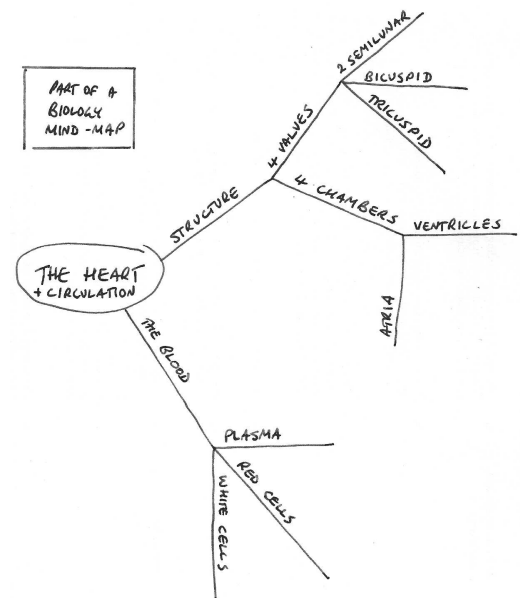 PART OF A
BIOLOGY
MIND-MAP
THE HEART
+ CIRCULATION
STRUCTURE
4 VALVES
2 SEMILUNAR
BICUSPID
TRICUSPID
4 CHAMBERS
VENTRICLES
ATRIA
THE BLOOD
PLASMA
RED CELLS
WHITE CELLS